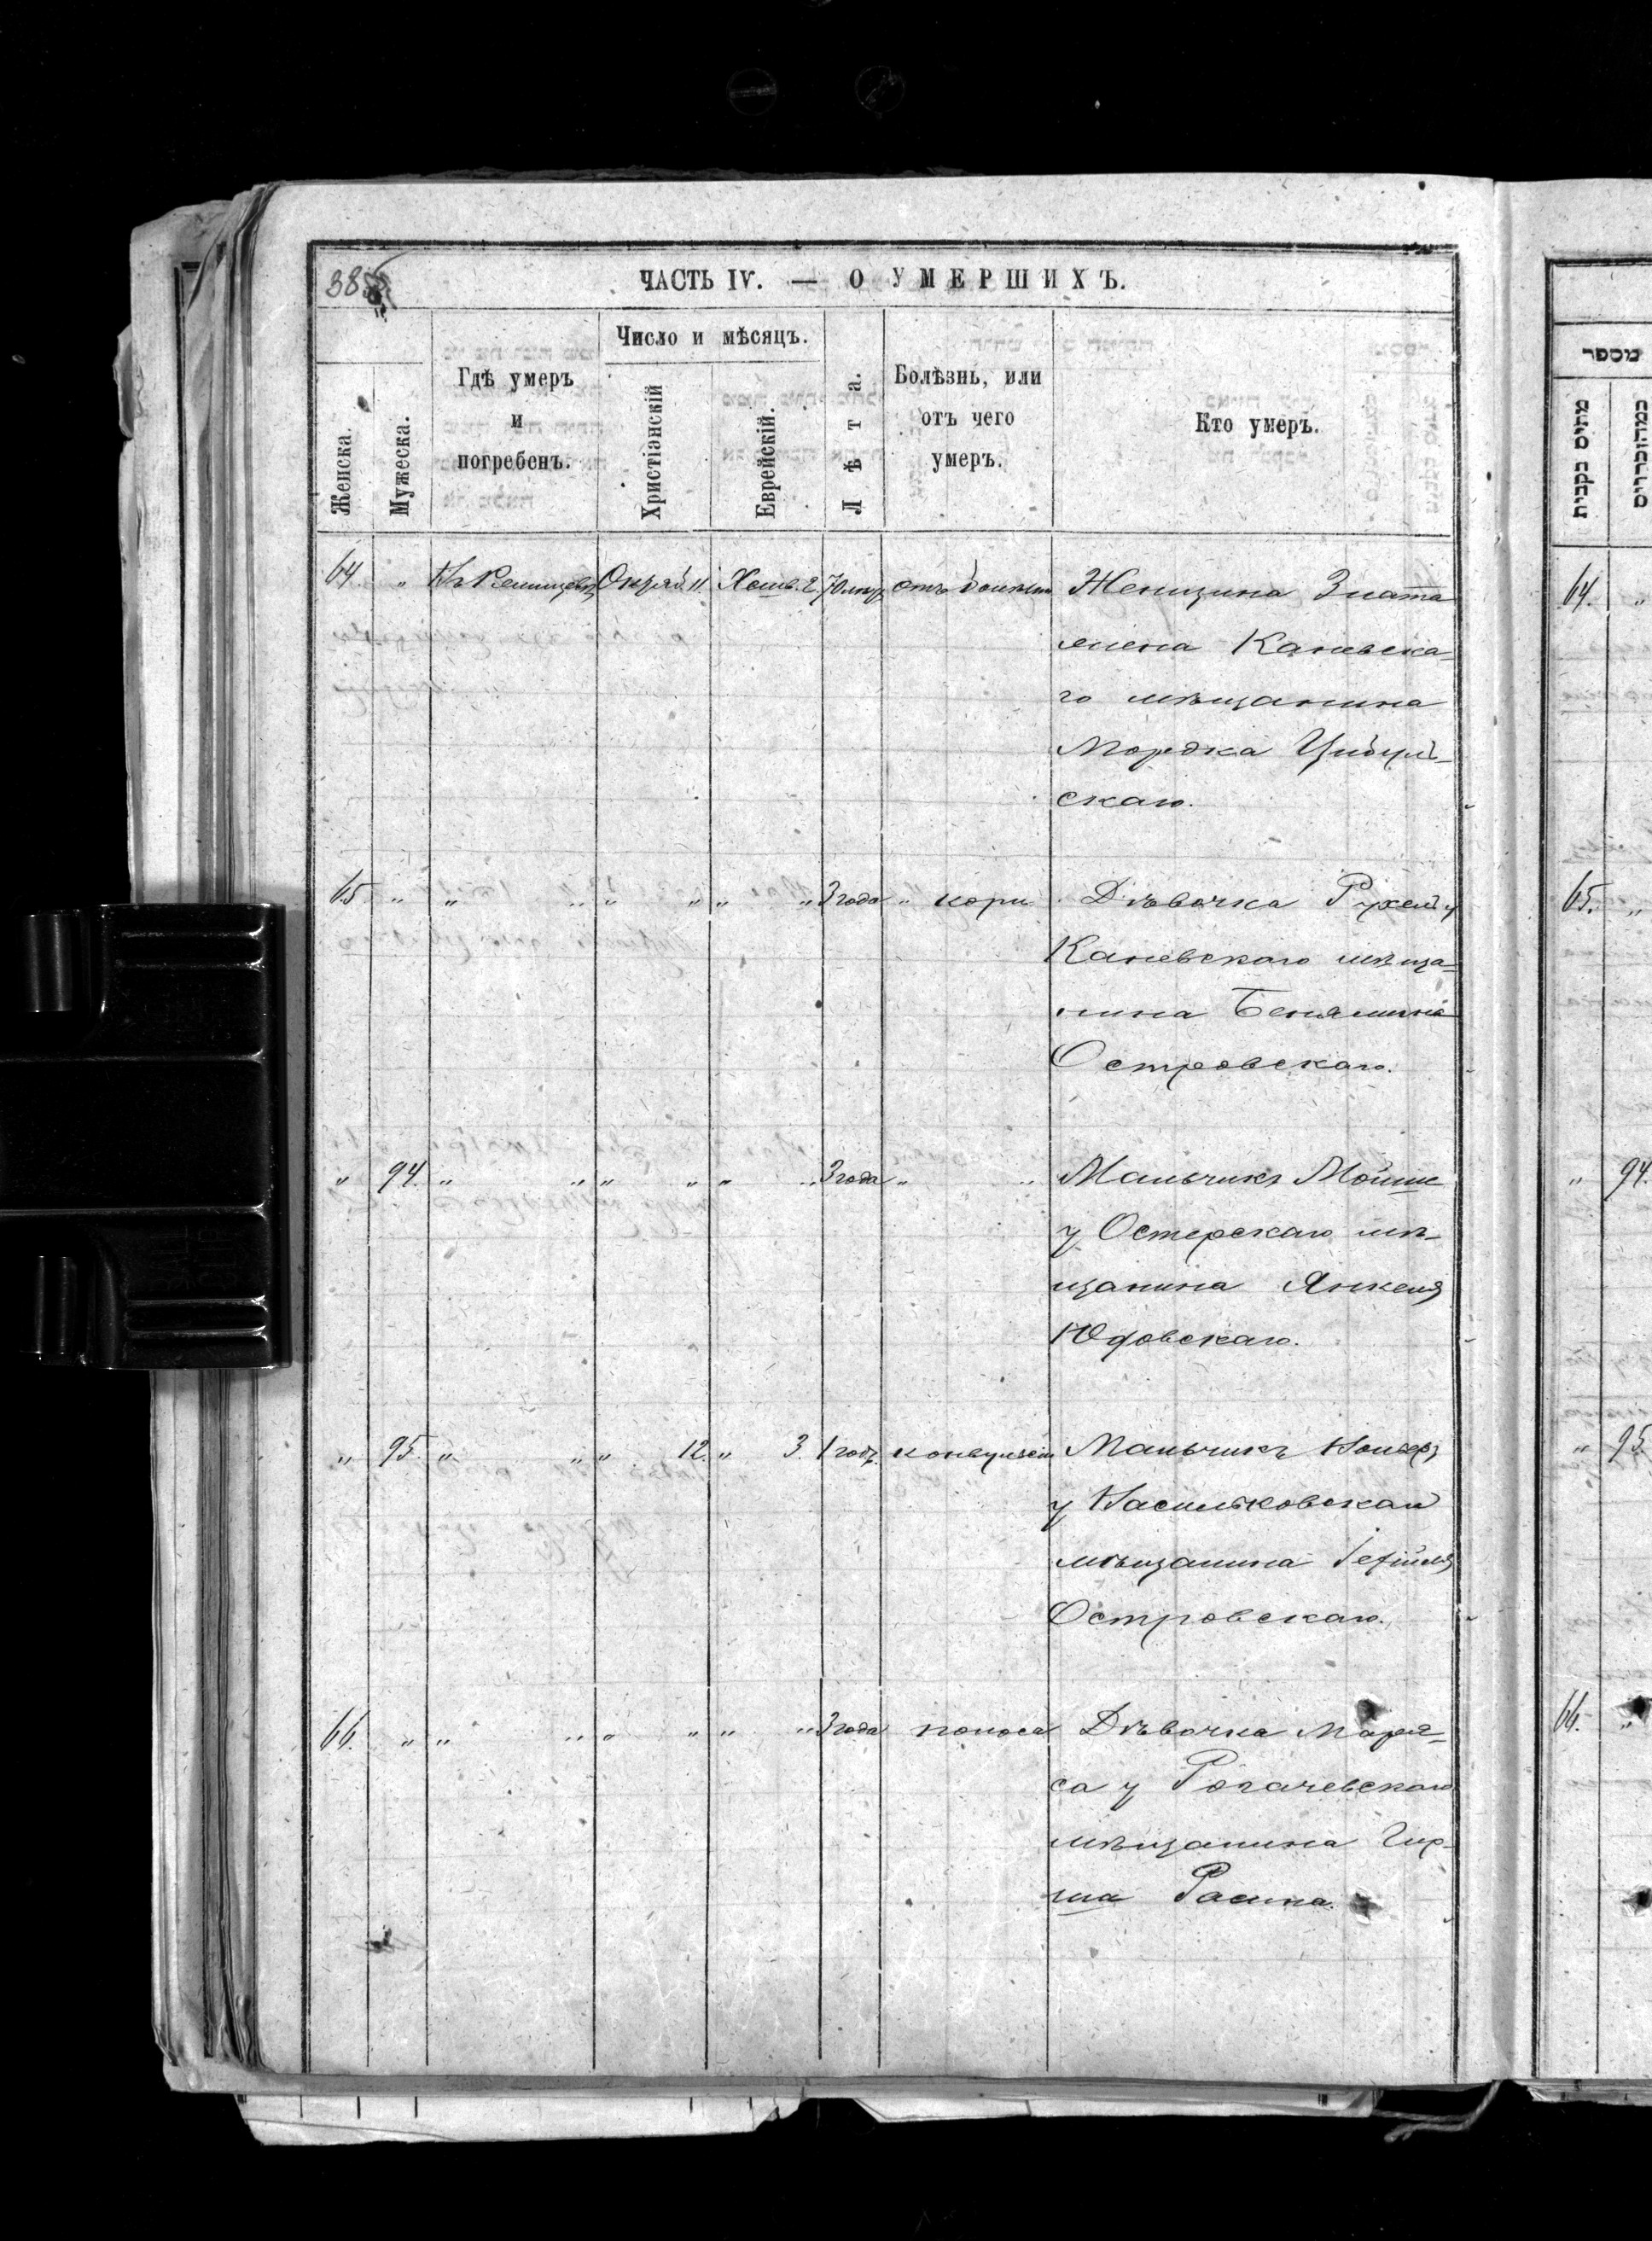 ЧАСТЬ IV. — О УМЕРШИХЪ.
Женска.
Мужеска.
Гдѣ умеръ
и
погребенъ.
Число и мѣсяцъ.
Христіанскій
Еврейскій.
Лѣта.
Болѣзнь, или
отъ чего
умеръ.
Кто умеръ.
64. „ Октяб. 11. Хешв. 2. отъ Женщина Злата
жена Каневска-
го мѣщанина
Мордка Цибуль-
скаго.
65. „ „ „ „ „ „ „ 3 года „ кори Дѣвочка Рухель у
Каневскаго мѣща-
нина Беньямина
Островскаго.
„ 94. „ „ „ „ „ „ 3 года „ „ Мальчикъ Мойше
у Остерскаго мѣ-
щанина Янкеля
Юдовскаго.
„ 95. „ „ „ 12. „ 3. 1 годъ. Мальчикъ
у Васильковскаго
мѣщанина
Островскаго.
66. „ „ „ „ „ „ „ 3 года поноса Дѣвочка Марья-
са у Рогачевскаго
мѣщанина Гир-
ша Расина.
מספר
מתים בקבית
64. „
65. „
„ 94.
„ 95.
66. „